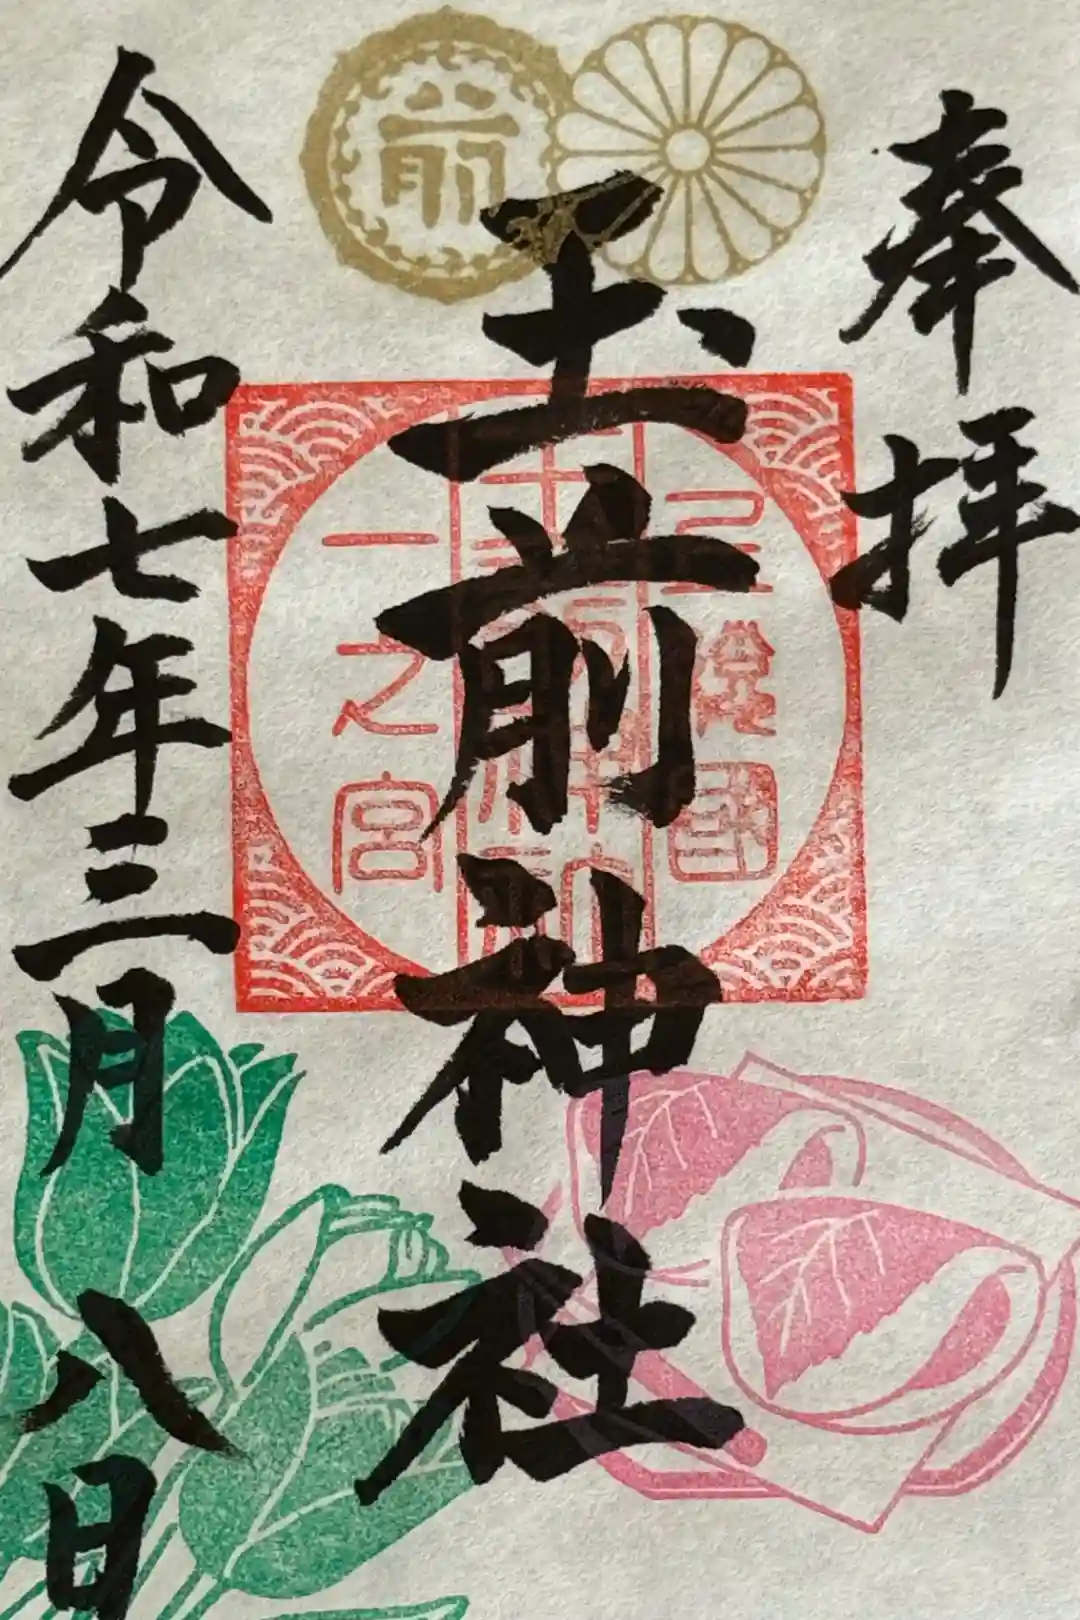 奉拝
前
玉前神社
上總國
一之宮
令和七年三月八日